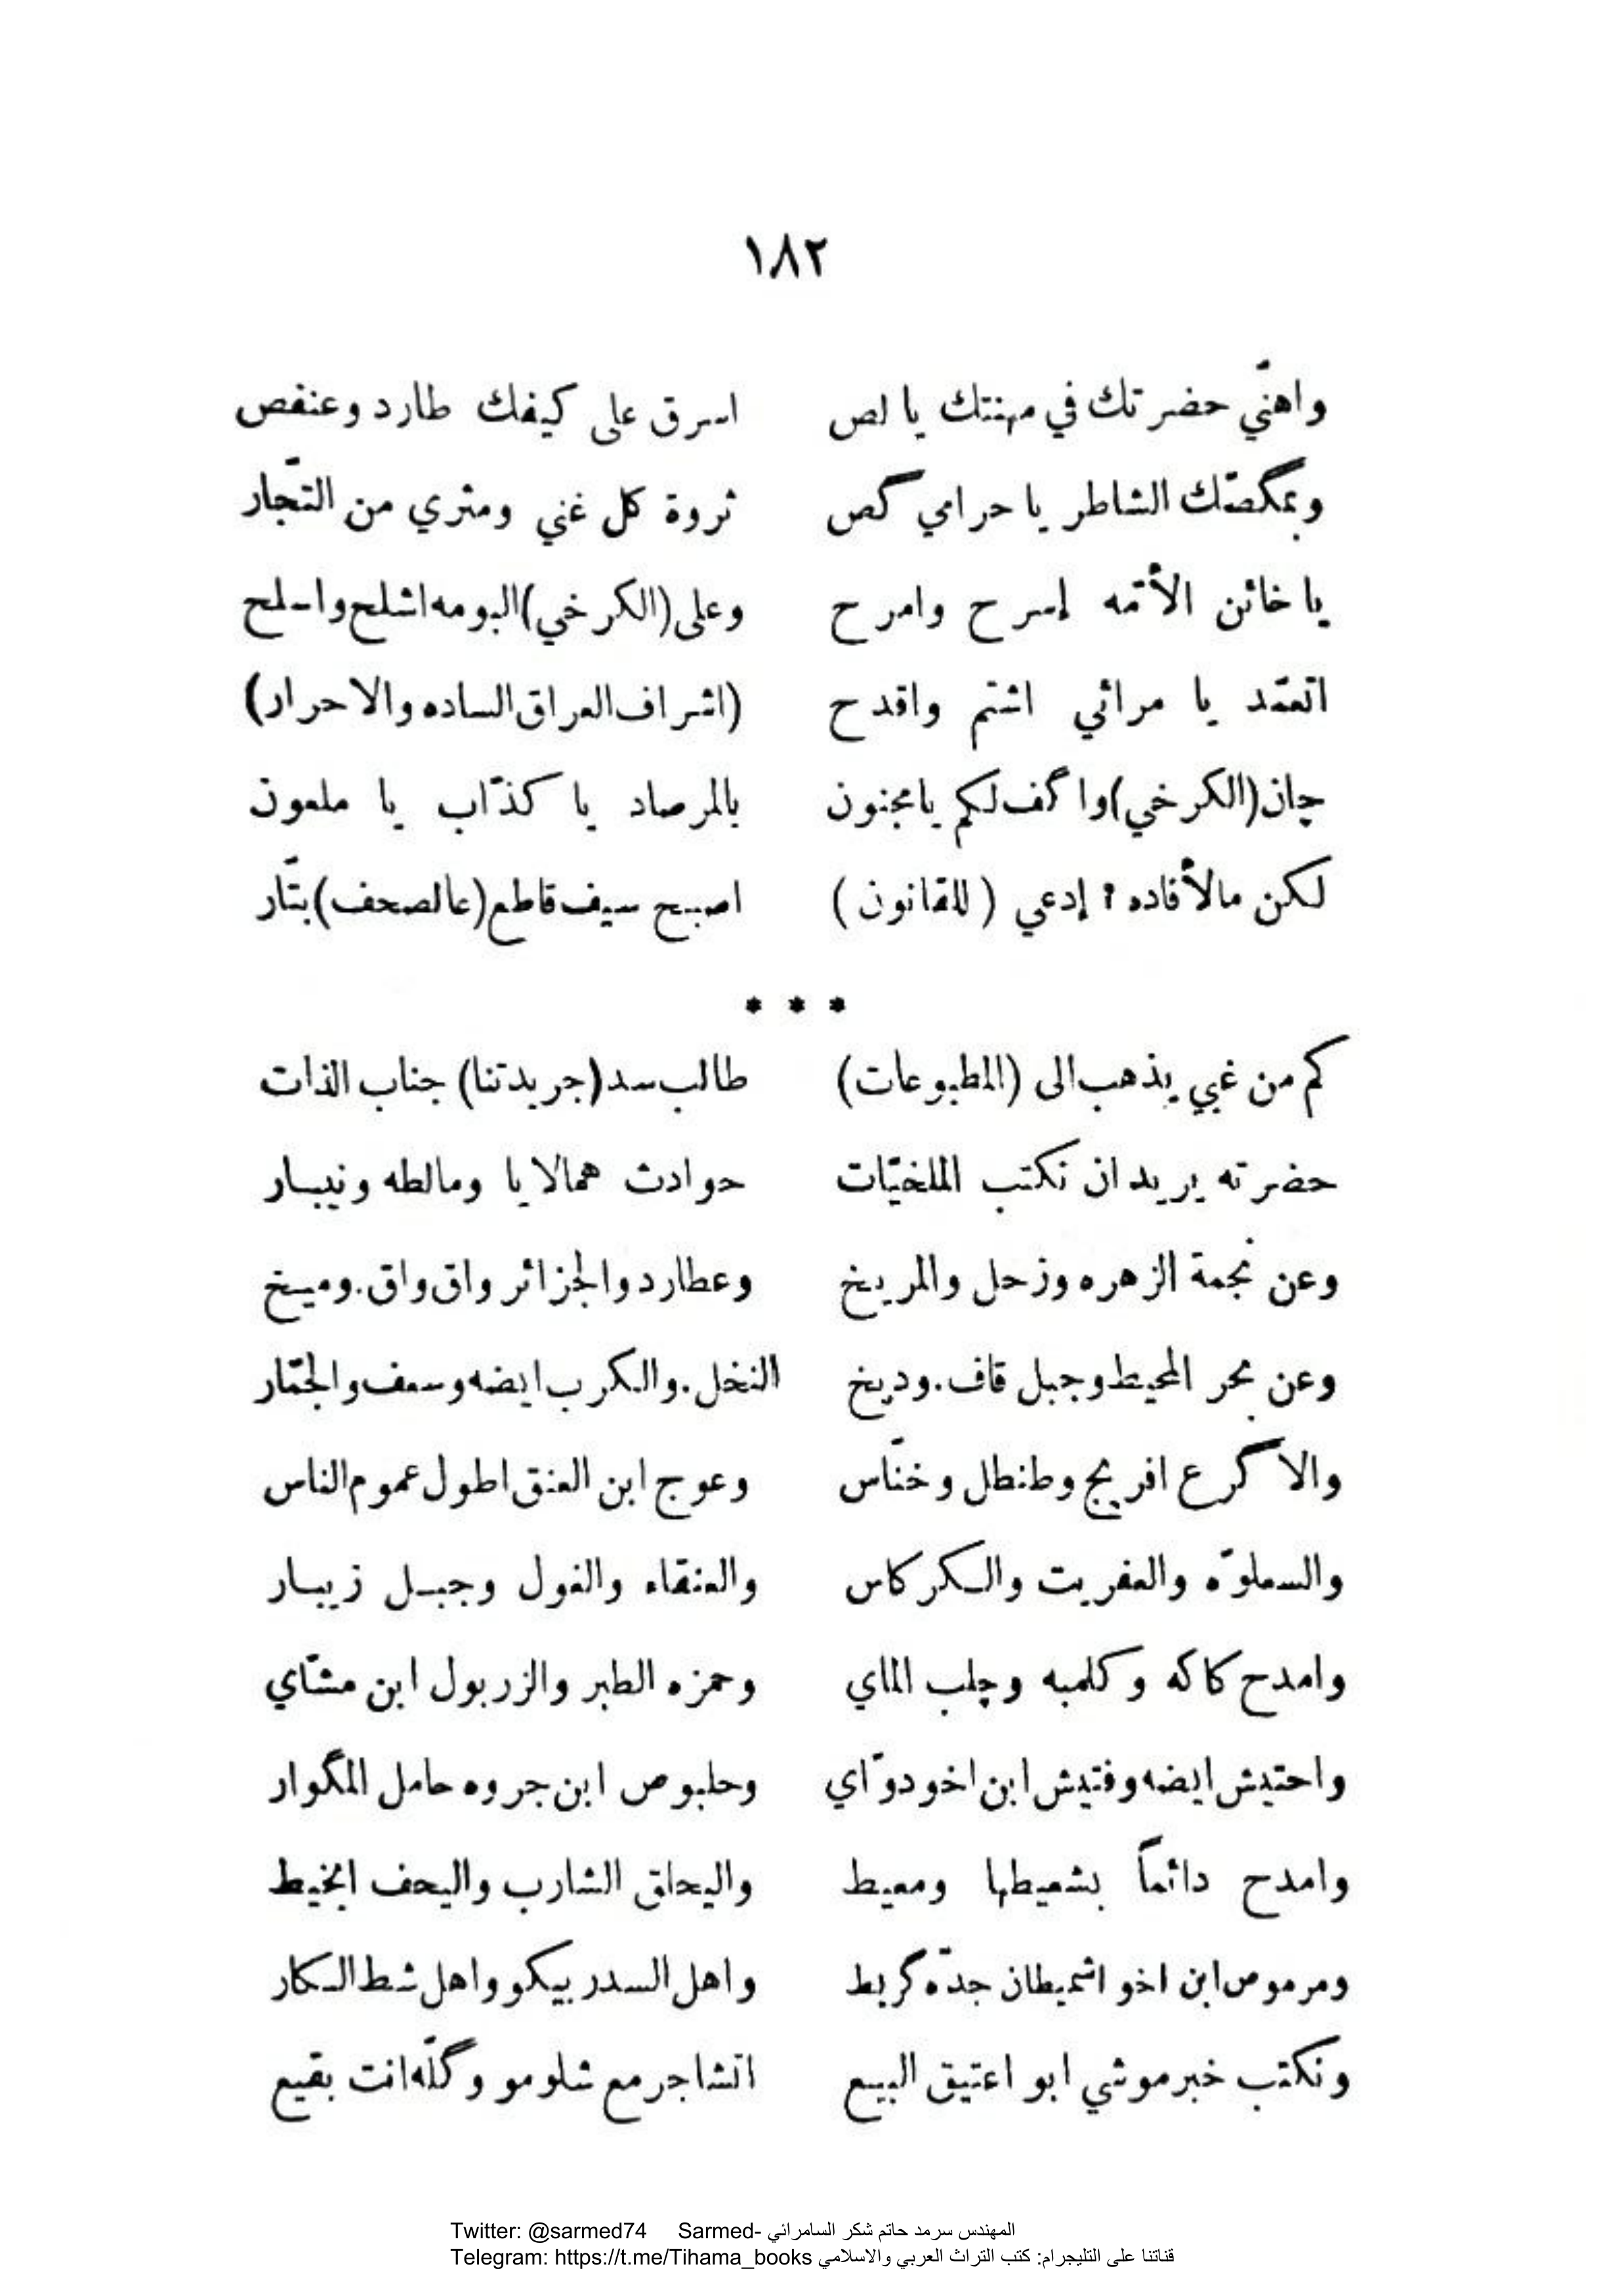 ١٨٢
واهنّي حضرتك في مهنتك يا لص اسرق على كيفك طارد وعنفص
وبمگصّك الشاطر يا حرامي گص ثروة كل غني ومثري من التجّار
يا خائن الأمّه إسرح وامرح وعلى (الكرخي) البومه اشلح واسلح
اتعمّد يا مرائي اشتم واقدح (اشراف العراق الساده والاحرار)
چان (الكرخي) واگف لكم يا مجنون بالمرصاد يا كذّاب يا ملعون
لكن مالأفاده ? إدعي (للقانون) اصبح سيف قاطع (عالصحف) بتّار
* * *
كم من غبي يذهب الى (المطبوعات) طالب سد (جريدتنا) جناب الذات
حضرته يريد ان نكتب الملخيّات حوادث همالايا ومالطه ونيبار
وعن نجمة الزهره وزحل والمريخ وعطارد والجزائر واق واق. وميخ
وعن بحر المحيط وجبل قاف. وديخ النخل. والكرب ايضه وسعف والجمّار
والاگرع افريج وطنطل وخنّاس وعوج ابن العنق اطول عموم الناس
والسعلوّه والعفريت والكركاس والعنقاء والغول وجبل زيبار
وامدح كاكه وكلمبه وچلب الماي وحمزه الطبر والزربول ابن مشّاي
واحتيش ايضه وفتيش ابن اخو دوّاي وحلبوص ابن جروه حامل المگوار
وامدح دائماً بشعيطها ومعيط واليحلق الشارب واليحف ابخيط
ومرموص ابن اخو اشميطان جدّه گريط واهل السدر بيكو واهل شط الكار
ونكتب خبر موشي ابو اعتيق البيع اتشاجر مع شلومو وگلّه انت بقيع
Twitter: @sarmed74 Sarmed- المهندس سرمد حاتم شكر السامرائي
Telegram: https://t.me/Tihama_books قناتنا على التليجرام: كتب التراث العربي والاسلامي